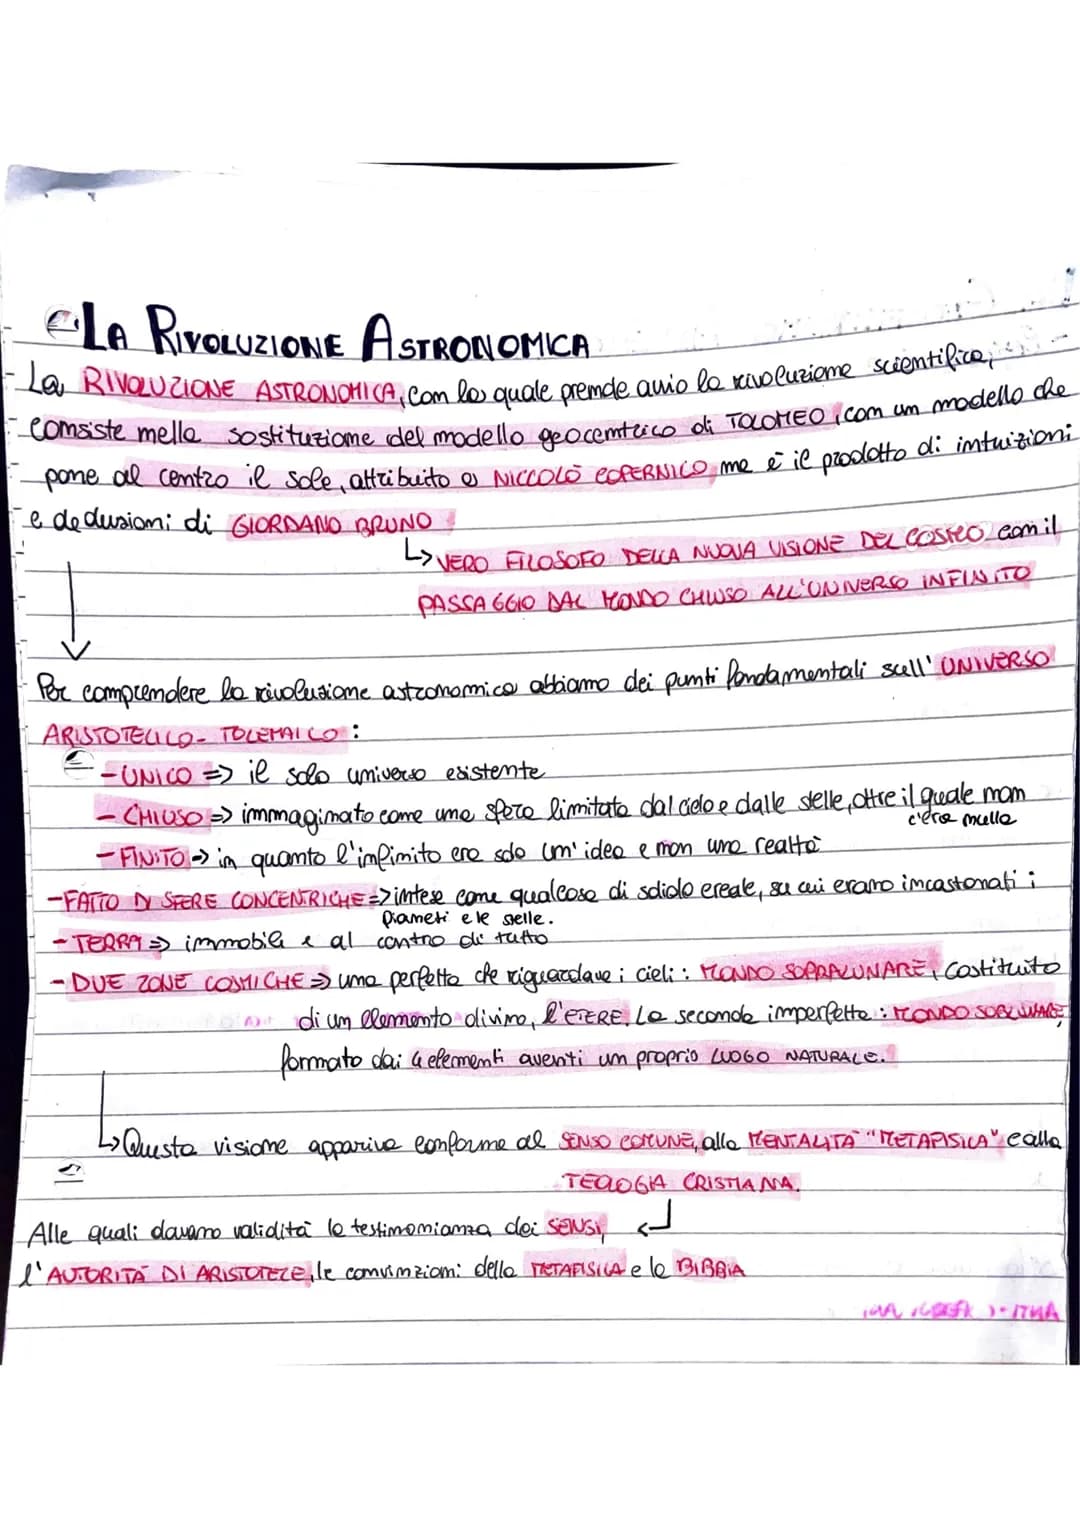 LA RIVOLUZIONE ASTRONOMICA
La RIVOLUZIONE ASTRONOMICA, con la quale prende avvio la rivoluzione scientifica,
consiste nella sostituzione del modello geocentrico di TOLOMEO, con un modello che
pone al centro il sole, attribuito a NICCOLÒ COPERNICO ma è il prodotto di intuizioni
e deduzioni di GIORDANO BRUNO
↳ VERO FILOSOFO DELLA NUOVA VISIONE DEL COSMO con il
PASSAGGIO DAL MONDO CHIUSO ALL'UNIVERSO INFINITO
Per comprendere la rivoluzione astronomica abbiamo dei punti fondamentali sull'UNIVERSO
ARISTOTELICO-TOLEMAICO:
-UNICO => il solo universo esistente
-CHIUSO => immaginato come una sfera limitata dal cielo e dalle stelle, oltre il quale non
c'era nulla
-FINITO -> in quanto l'infinito era solo un'idea e non una realtà
-FATTO DI SFERE CONCENTRICHE => intese come qualcosa di solido e reale, su cui erano incastonati i
Pianeti e le stelle.
-TERRA => immobile e al centro di tutto
-DUE ZONE COSMICHE => una perfetta che riguardava i cieli: MONDO SOPRALUNARE, costituito
di un elemento divino, l'ETERE. La seconda imperfetta: MONDO SUBLUNARE,
formato dai 4 elementi aventi un proprio LUOGO NATURALE.
↳ Questa visione appariva conforme al SENSO COMUNE, alla MENTALITÀ "METAFISICA" e alla
TEOLOGIA CRISTIANA.
Alle quali davano validità le testimonianza dei SENSI,
l'AUTORITÀ DI ARISTOTELE, le convinzioni della METAFISICA e la BIBBIA